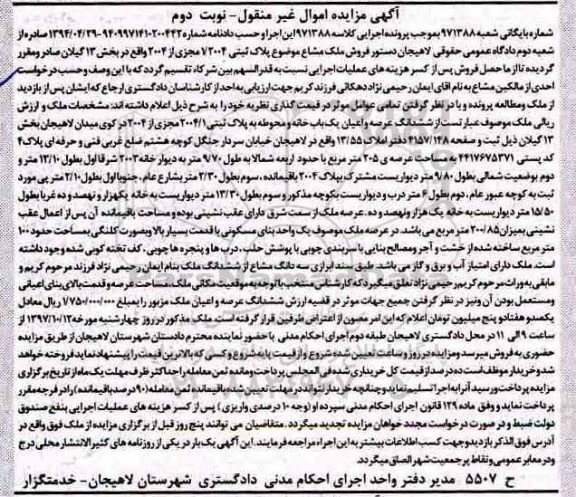 آگهی مزایده اموال غیر منقول- نوبت دوم
شماره بایگانی شعبه ۹۷۱۳۸۸ بموجب پرونده اجرایی کلاسه ۹۷۱۳۸۸ این اجرا و حسب دادنامه شماره ۹۴۰۹۹۷۱۴۱۰۲۰۰۴۴۲- ۱۳۹۴/۰۴/۲۹ صادره از
شعبه دوم دادگاه عمومی حقوقی لاهیجان دستور فروش ملک مشاع موضوع پلاک ثبتی ۷۰۰۴۲ مجزی از ۲۰۰۴ واقع در بخش ۱۳ گیلان صادر و مقرر
گردیده تا از ما حصل فروش پس از کسر هزینه های عملیات اجرایی نسبت به قدرالسهم بین شرکاء تقسیم گردد که با این وصف و حسب درخواست
احدی از مالکین مشاع به نام آقای ایمان رحیمی نژاد دهکائی فرزند کریم جهت ارزیابی به احد از کارشناسان دادگستری ارجاع که ایشان پس از بازدید
از ملک و مطالعه پرونده و با در نظر گرفتن تمامی عوامل موثر در قیمت گذاری نظریه خود را به شرح ذیل اعلام داشته اند: مشخصات ملک و ارزش
ریالی ملک موصوف عبارتست از ششدانگ عرصه و اعیان یک باب خانه و محوطه به پلاک ثبتی ۲۰۰۴/۱ مجزی از ۲۰۰۴ در کوی میدان لاهیجان بخش
۱۳ گیلان ذیل ثبت و صفحه ۴۱۵۷/۱۴۸ دفتر املاک ۱۳/۵۵ واقع در لاهیجان خیابان سردار جنگل کوچه هشتم ضلع غربی فنی و حرفه ای پلاک ۴
کد پستی ۴۴۱۷۶۷۵۳۷۱ به مساحت عرصه ی ۲۰۵ متر مربع با حدود اربعه شمالا به طول ۹/۷۰ متر به دیوار خانه ۲۰۰۳ شرقا اول بطول ۱۰/۱۳ متر و
دوم بوضعیت شمالی بطول ۹/۸۰ متر دیواریست مشترک بپلاک ۲۰۰۴ باقیمانده ، سوم بطول ۲/۳۰ متر بشارع عام ، جنوبا اول بطول ۲/۱۰ متر پی مورد
ثبت به کوچه عبور عام ، دوم بطول ۶ متر درب و دیواریست بکوچه مذکور و سوم بطول ۱۳/۳۰ متر دیواریست به خانه یکهزار و نهصد و ده غربا بطول
۱۵/۵۰ متر دیواریست به خانه یک هزار و نهصد و ده. عرصه ملک از سمت شرق دارای عقب نشینی بوده و مساحت باقیمانده آن پس از اعمال عقب
نشینی بمیزان ۲۰۰/۸۵ متر مربع می باشد. در عرصه ملک موصوف یک واحد بنای مسکونی با قدمت بسیار بالا و بصورت کلنگی بمساحت حدود ۱۰۰
متر مربع ساخته شده از خشت و آجر و مصالح بنایی با سربندی چوبی با پوشش حلب، درب ها و پنجره ها چوبی ، کف تخته کوبی شده وجود داشته
است. ملک دارای امتیاز آب و برق و گاز می باشد. طبق سند ابرازی سه دانگ مشاع از ششدانگ ملک بنام ایمان رحیمی نژاد فرزند مرحوم کریم و
مابقی به وراث مرحوم کریم رحیمی نژاد تعلق میگیرد که کارشناس منتخب با توجه به موقعیت مکانی ملک، مساحت عرصه و قدمت بالای بنای اعیانی
و مستعمل بودن آن و نیز در نظر گرفتن جمیع جهات موثر در قضیه ارزش ششدانگ عرصه و اعیان ملک مزبور را بمبلغ ۱/۷۵۰/۰۰۰/۰۰۰ ریال معادل
یکصد و هفتاد و پنج میلیون تومان اعلام که این امر مصون از اعتراض طرفین قرار گرفته است. ملک مذکور در روز چهارشنبه مورخه ۱۳۹۷/۱۰/۱۲ از
ساعت ۹ الی ۱۱ در محل دادگستری لاهیجان طبقه دوم اجرای احکام مدنی با حضور نماینده محترم دادستان شهرستان لاهیجان از طریق مزایده
حضوری به فروش میرسد و مزایده در روز و ساعت تعیین شده شروع و از قیمت پایه شروع و کسی که بالاترین قیمت را پیشنهاد نماید فروخته خواهد
شد و خریدار موظف است ده درصد از قیمت کل خریداری شده فی المجلس پرداخت و مانده ثمن معامله را حداکثر ظرف مهلت یک ماه از تاریخ برگزاری
مزایده پرداخت و رسید آنرا به اجرا تسلیم نماید و چنانچه خریدار نتواند در مهلت تعیین شده باقیمانده ثمن معامله (۹۰درصد باقیمانده) را در فرجه مقرر
پرداخت نماید و وفق ماده ۱۲۹ قانون اجرای احکام مدنی سپرده او (وجه ۱۰ درصدی واریزی ) پس از کسر هزینه های عملیات اجرایی بنفع صندوق
دولت ضبط و در صورت درخواست مجدد خواهان مزایده تجدید میگردد. متقاضیان می توانند پنج روز قبل از برگزاری مزایده از ملک فوق واقع در
آدرس فوق الذکر بازدید و جهت کسب اطلاعات بیشتر به این اجراء مراجعه فرمایند. این آگهی یک بار در یکی از روزنامه های کثیرالانتشار محلی درج
و در معابر عمومی و نقاط پر جمعیت شهر الصاق میگردد.
ح ۵۵۰۷ مدیر دفتر واحد اجرای احکام مدنی دادگستری شهرستان لاهیجان- خدمتگزار